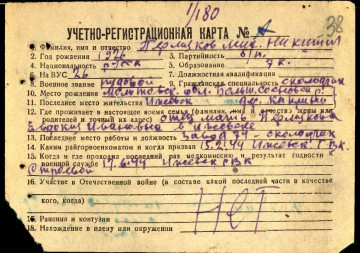 1/180
38
УЧЕТНО-РЕГИСТРАЦИОННАЯ КАРТА №
2. Фамилия, имя и отчество Пермяков Мих. Никитич
2. Год рождения 1926 3. Партийность б/п.
4. Национальность русск 5. Образование 7 к.
6. На ВУС 26 7. Должностная квалификация
8. Военное звание рядовой 9. Гражданская специальность
10. Место рождения Молотовск. обл. Больш. Сосновск р.
11. Последнее место жительства Ижевск
12. Где проживает в настоящее время (фамилия, имя и отчество жены или
родителей и точный их адрес) отец мать Пермякова
Ивановна в Ижевске
13. Последнее место работы и должность Завод
14. Каким райгорвоенкоматом и когда призван 15.2.44 Ижевск. ГВК.
15. Когда и где проходил последний раз медкомиссию, результат годности
военной службе 17.6.44 Ижевск РВК
16. Участие в Отечественной войне (в составе какой последней части в качестве
кого, когда)
Нет
17. Ранения и контузии
18. Нахождение в плену или окружении